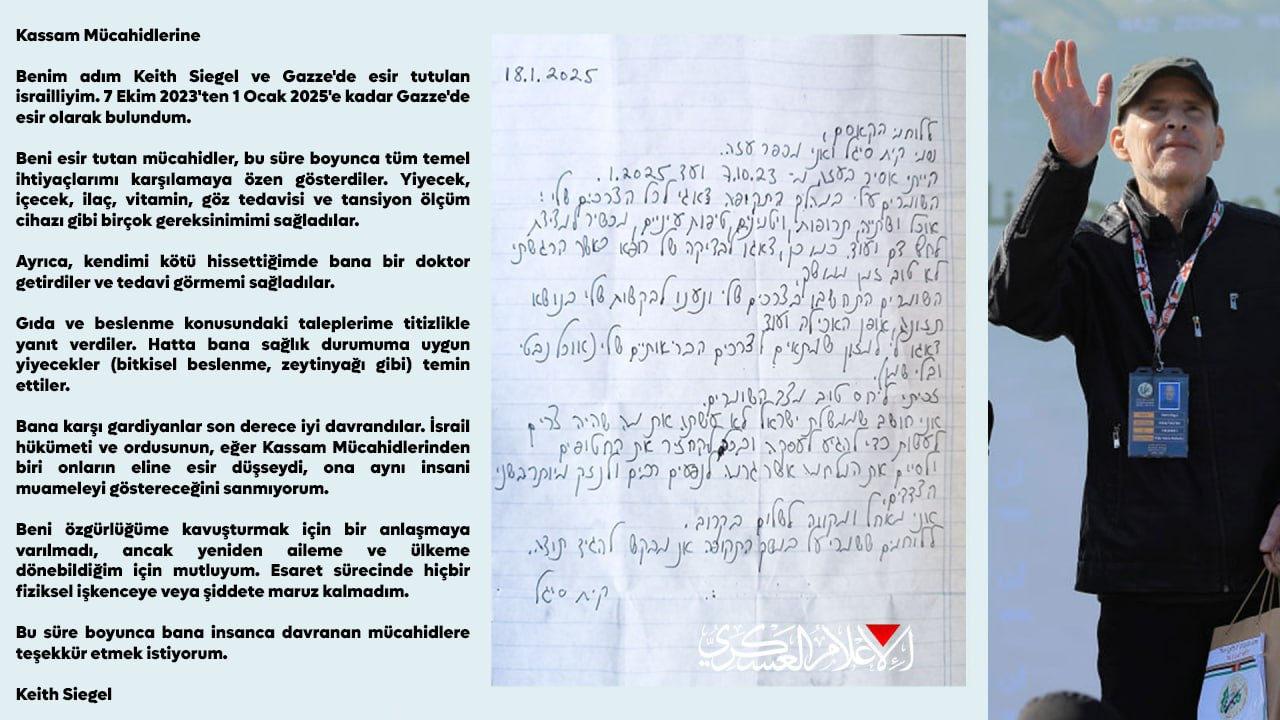 Kassam Mücahidlerine
Benim adım Keith Siegel ve Gazze'de esir tutulan
israilliyim. 7 Ekim 2023'ten 1 Ocak 2025'e kadar Gazze'de
esir olarak bulundum.
Beni esir tutan mücahidler, bu süre boyunca tüm temel
ihtiyaçlarımı karşılamaya özen gösterdiler. Yiyecek,
içecek, ilaç, vitamin, göz tedavisi ve tansiyon ölçüm
cihazı gibi birçok gereksinimimi sağladılar.
Ayrıca, kendimi kötü hissettiğimde bana bir doktor
getirdiler ve tedavi görmemi sağladılar.
Gıda ve beslenme konusundaki taleplerime titizlikle
yanıt verdiler. Hatta bana sağlık durumuma uygun
yiyecekler (bitkisel beslenme, zeytinyağı gibi) temin
ettiler.
Bana karşı gardiyanlar son derece iyi davrandılar. İsrail
hükümeti ve ordusunun, eğer Kassam Mücahidlerinden
biri onların eline esir düşseydi, ona aynı insani
muameleyi göstereceğini sanmıyorum.
Beni özgürlüğüme kavuşturmak için bir anlaşmaya
varılmadı, ancak yeniden aileme ve ülkeme
dönebildiğim için mutluyum. Esaret sürecinde hiçbir
fiziksel işkenceye veya şiddete maruz kalmadım.
Bu süre boyunca bana insanca davranan mücahidlere
teşekkür etmek istiyorum.
Keith Siegel
18.1.2025
ללוחמי הקאסם,
שמי קית סיגל ואני מכפר עזה.
הייתי אסיר בעזה מ- 7.10.23 ועד 1.2025.
השומרים עלי במהלך התקופה דאגו לכל הצרכים שלי:
אוכל ושתייה, תרופות, ויטמינים, טיפות עיניים, מכשיר למדידת
לחץ דם ועוד. כמו כן, דאגו לבדיקה של רופא כאשר הרגשתי
לא טוב זמן ממושך.
השומרים התחשבו בצרכים שלי ונענו לבקשות שלי בנושא
תזונה, אופן האכילה ועוד
דאגו לי למזון שמתאים לצרכים הבריאותיים שלי (אוכל נבטי
ובלי שמן).
זכיתי ליחס טוב מצד השומרים.
אני חושב שממשלת ישראל לא עשתה את מה שהיה צריך
לעשות כדי להגיע לעסקה ובכך להחזיר את החטופים
ולסיים את המלחמה אשר גרמה לנפגעים רבים ולנזק משני
הצדדים.
אני מאחל ומקווה לשלום בקרוב.
ללוחמים ששמרו עלי במשך התקופה אני מבקש להגיד תודה.
קית סיגל
الإعلام العسكري